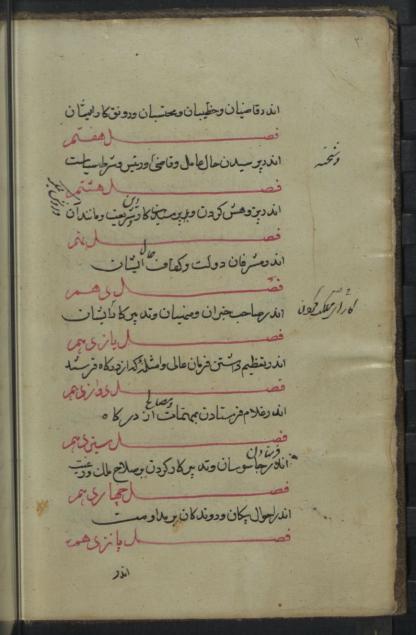 اندر قاضیان و خطیبان و محتسبان و رونق کار ایشان
فصل هفتم
اندر پرسیدن حال عامل و قاضی و رئیس و شرط سیاست
فصل هشتم
اندر پژوهش کردن و بررسیدن کار دین و شریعت و مانند آن
فصل نهم
اندر مشرفان دولت و کفاف حال ایشان
فصل دهم
اندر صاحب خبران و منهیان و تدبیر کار ایشان
فصل یازدهم
اندر تعظیم داشتن فرمان عالی و امثله که از درگاه فرستند
فصل دوازدهم
اندر غلام فرستادن بمهمات و مصالح از درگاه
فصل سیزدهم
اندر جاسوسان فرستادن و تدبیر کار کردن بر صلاح ملک و رعیت
فصل چهاردهم
اندر احوال پیکان و دوندگان بر مداومت
فصل پانزدهم
اندر